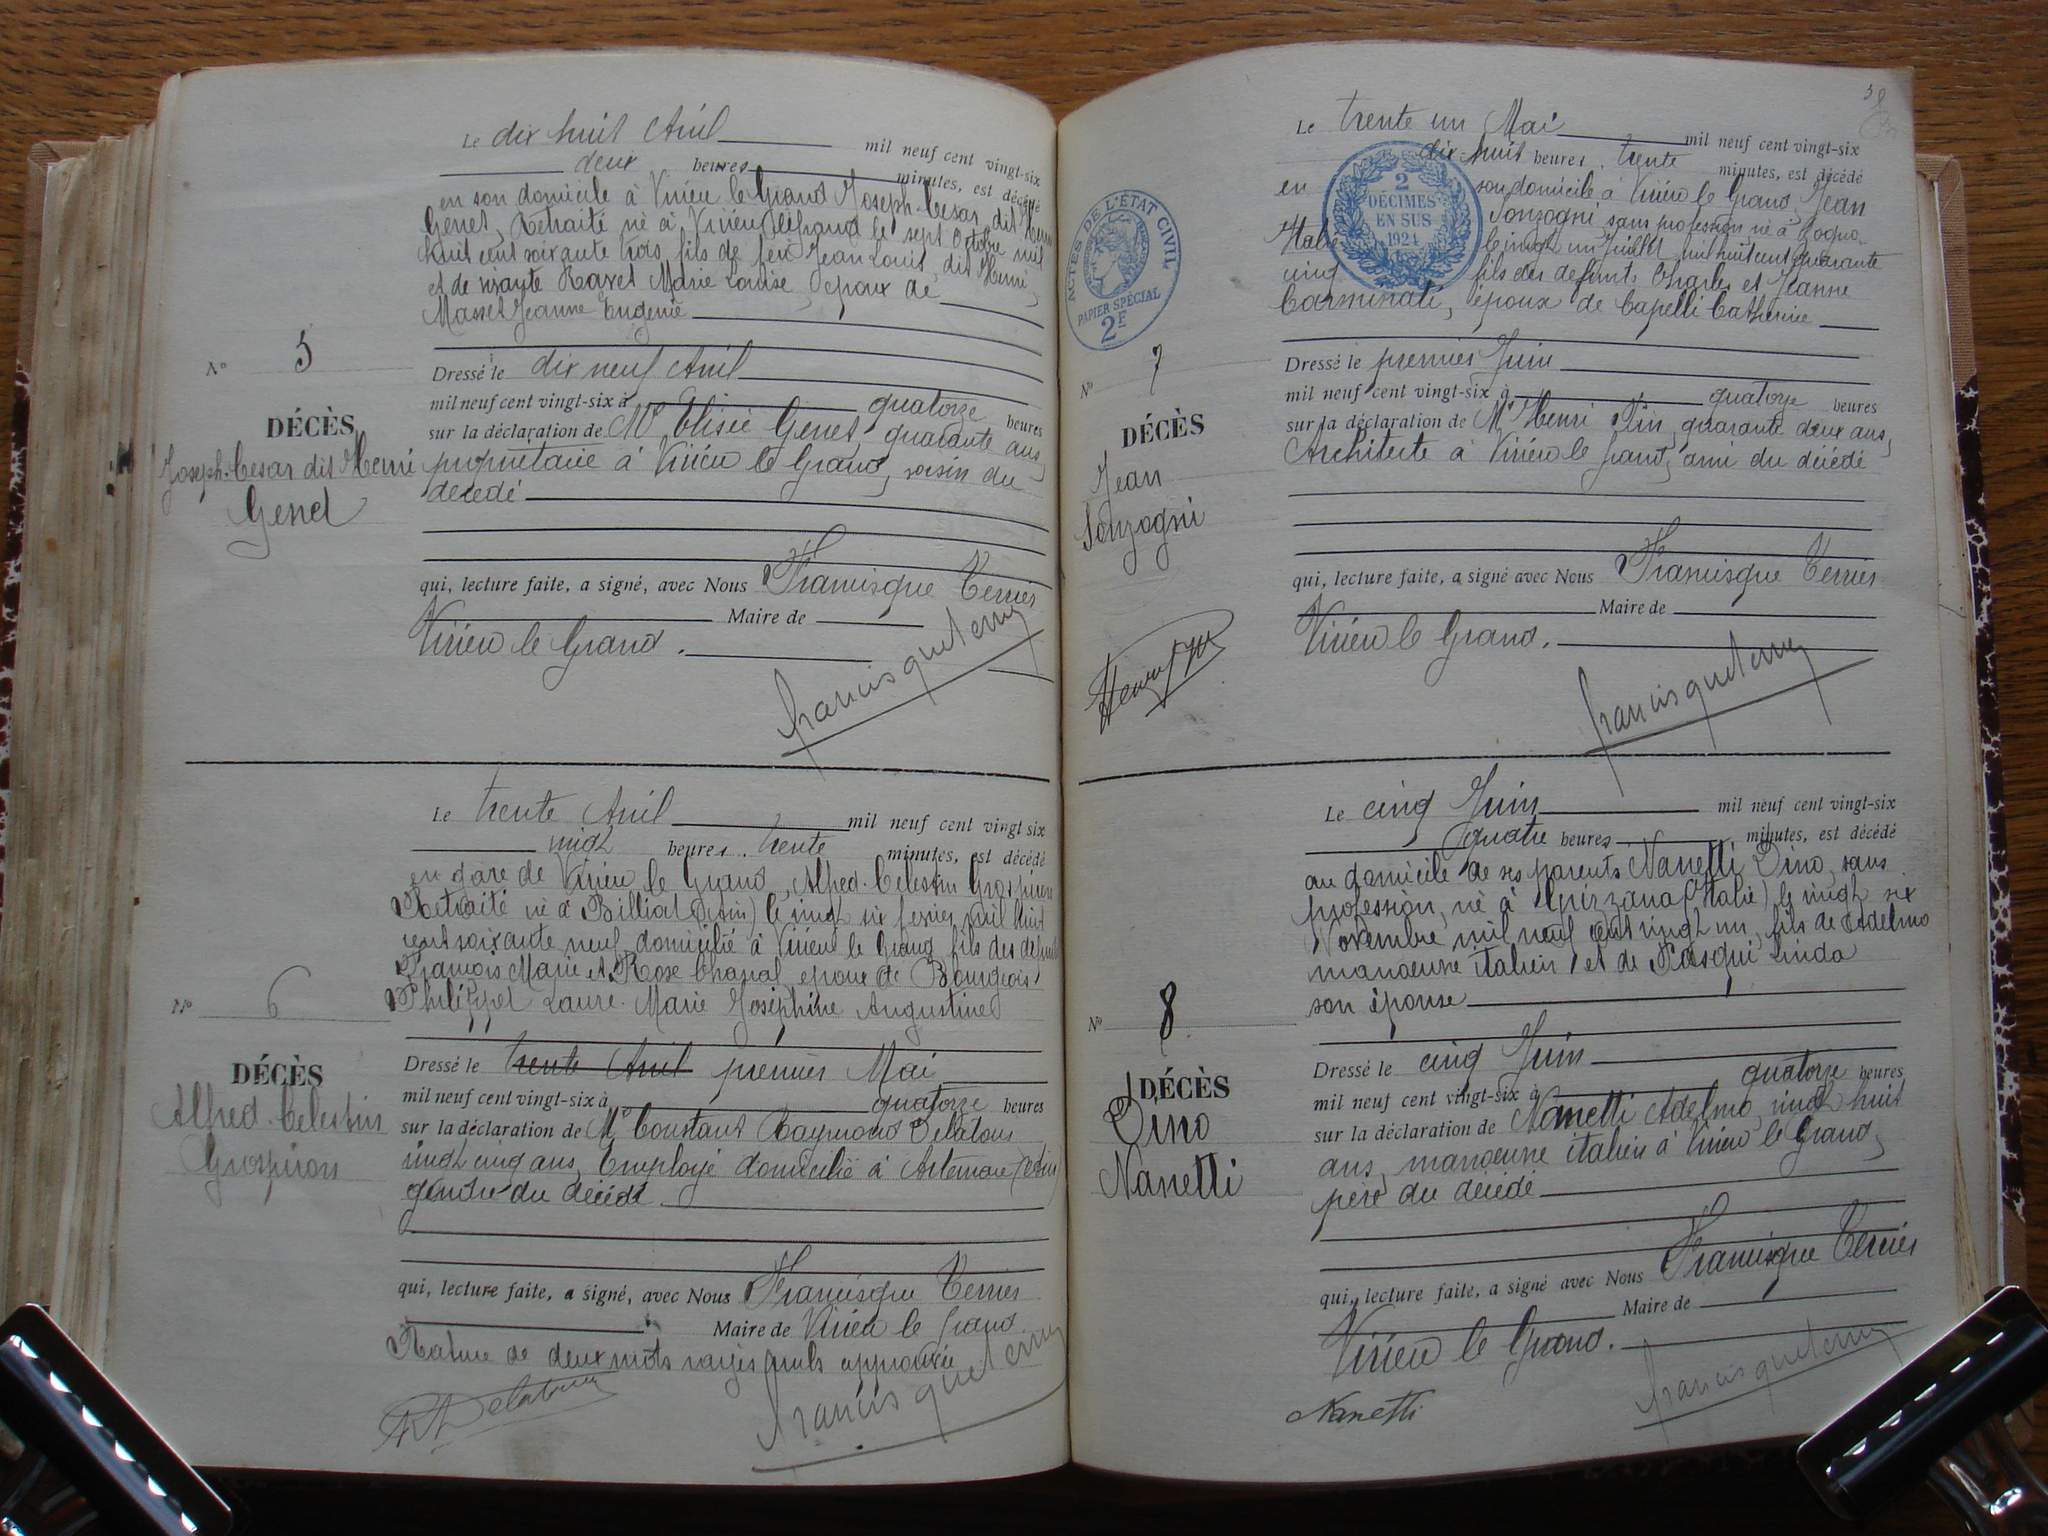 Le dix huit Avril mil neuf cent vingt-six
deux heures minutes, est décédé
en son domicile à Virieu le Grand Joseph-Cesar dit Henri
Genet, Retraité né à Virieu le Grand le sept Octobre mil
huit cent soixante trois fils de feu Jean Louis, dit Henri,
et de vivante Ravet Marie Louise, époux de
Masset Jeanne Eugénie
Nº 5
DÉCÈS
Joseph-Cesar dit Henri
Genet
Dressé le dix neuf Avril
mil neuf cent vingt-six à quatorze heures
sur la déclaration de Mr Elisée Genet, quarante ans,
propriétaire à Virieu le Grand, voisin du
décédé
qui, lecture faite, a signé, avec Nous Francisque Terrier
Maire de
Virieu le Grand.
francisque terrier
Le trente Avril mil neuf cent vingt six
vingt heures trente minutes, est décédé
en gare de Virieu le Grand, Alfred-Celestin Grospiron
Retraité né à Billiat (Ain) le vingt six fevrier mil huit
cent soixante neuf domicilié à Virieu le Grand fils des défunts
François Marie et Rose Chapal epoux de Bourgeois
Philippet Laure Marie Joséphine Augustine
Nº 6
DÉCÈS
Alfred-Celestin
Grospiron
Dressé le trente Avril premier Mai
mil neuf cent vingt-six à quatorze heures
sur la déclaration de Mr Constant Raymond Delatour
vingt cinq ans, Employé domicilié à Artemare (Ain)
gendre du décédé
qui, lecture faite, a signé, avec Nous Francisque Terrier
Maire de Virieu le Grand
Rature de deux mots rayés nuls approuvée
Delatour
francisque terrier
38
Le trente un Mai mil neuf cent vingt-six
dix-huit heures trente minutes, est décédé
en son domicile à Virieu le Grand, Jean
Sonzogni sans profession né à
Italie vingt un Juillet mil huit cent quarante
cinq fils des défunts Charles et Jeanne
Carminati, époux de Capelli Catherine
2
DÉCIMES
EN SUS
1924
ACTES DE L'ÉTAT CIVIL
PAPIER SPÉCIAL
2F
Nº 7
DÉCÈS
Jean
Sonzogni
Dressé le premier Juin
mil neuf cent vingt-six à quatorze heures
sur la déclaration de Mr Henri Pin, quarante deux ans,
Architecte à Virieu le Grand, ami du décédé
qui, lecture faite, a signé avec Nous Francisque Terrier
Maire de
Virieu le Grand.
francisque terrier
Le cinq Juin mil neuf cent vingt-six
quatre heures minutes, est décédé
au domicile de ses parents Nanetti Dino, sans
profession, né à (Italie) le vingt six
Novembre mil neuf cent vingt un, fils de Adelmo
manoeuvre italien et de Pasqui Linda
son épouse
Nº 8
DÉCÈS
Dino
Nanetti
Dressé le cinq Juin
mil neuf cent vingt-six à quatorze heures
sur la déclaration de Nanetti Adelmo, vingt huit
ans, manoeuvre italien à Virieu le Grand,
père du décédé
qui, lecture faite, a signé avec Nous Francisque Terrier
Maire de
Virieu le Grand.
Nanetti
francisque terrier